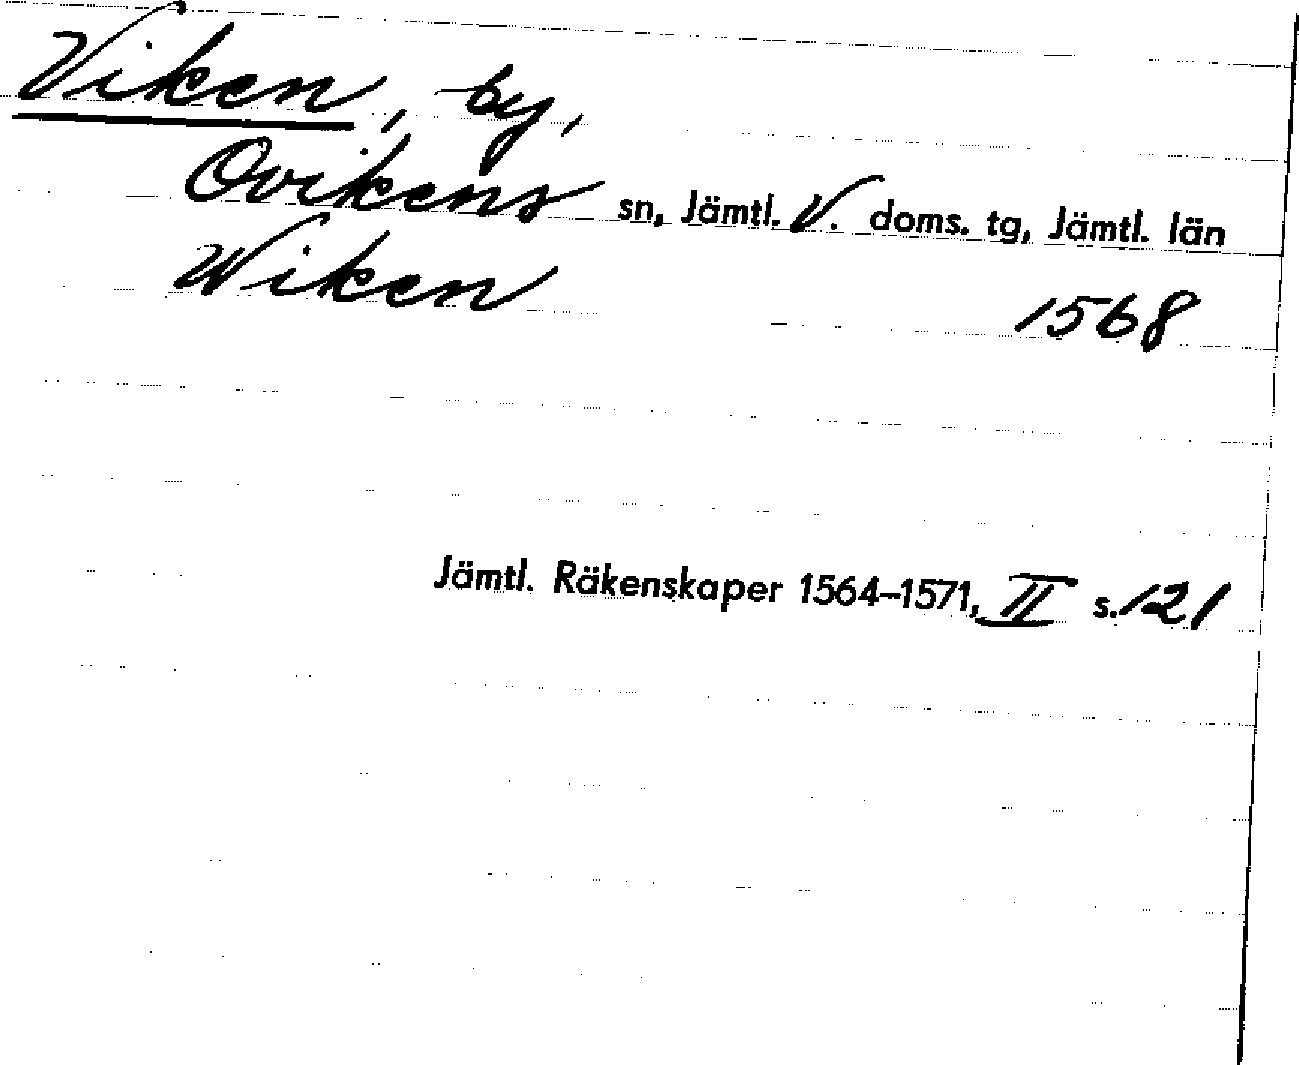 Viken, by,
Ovikens sn, Jämtl. V. doms. tg, Jämtl. län
Wiken 1568
Jämtl. Räkenskaper 1564–1571, II s. 121